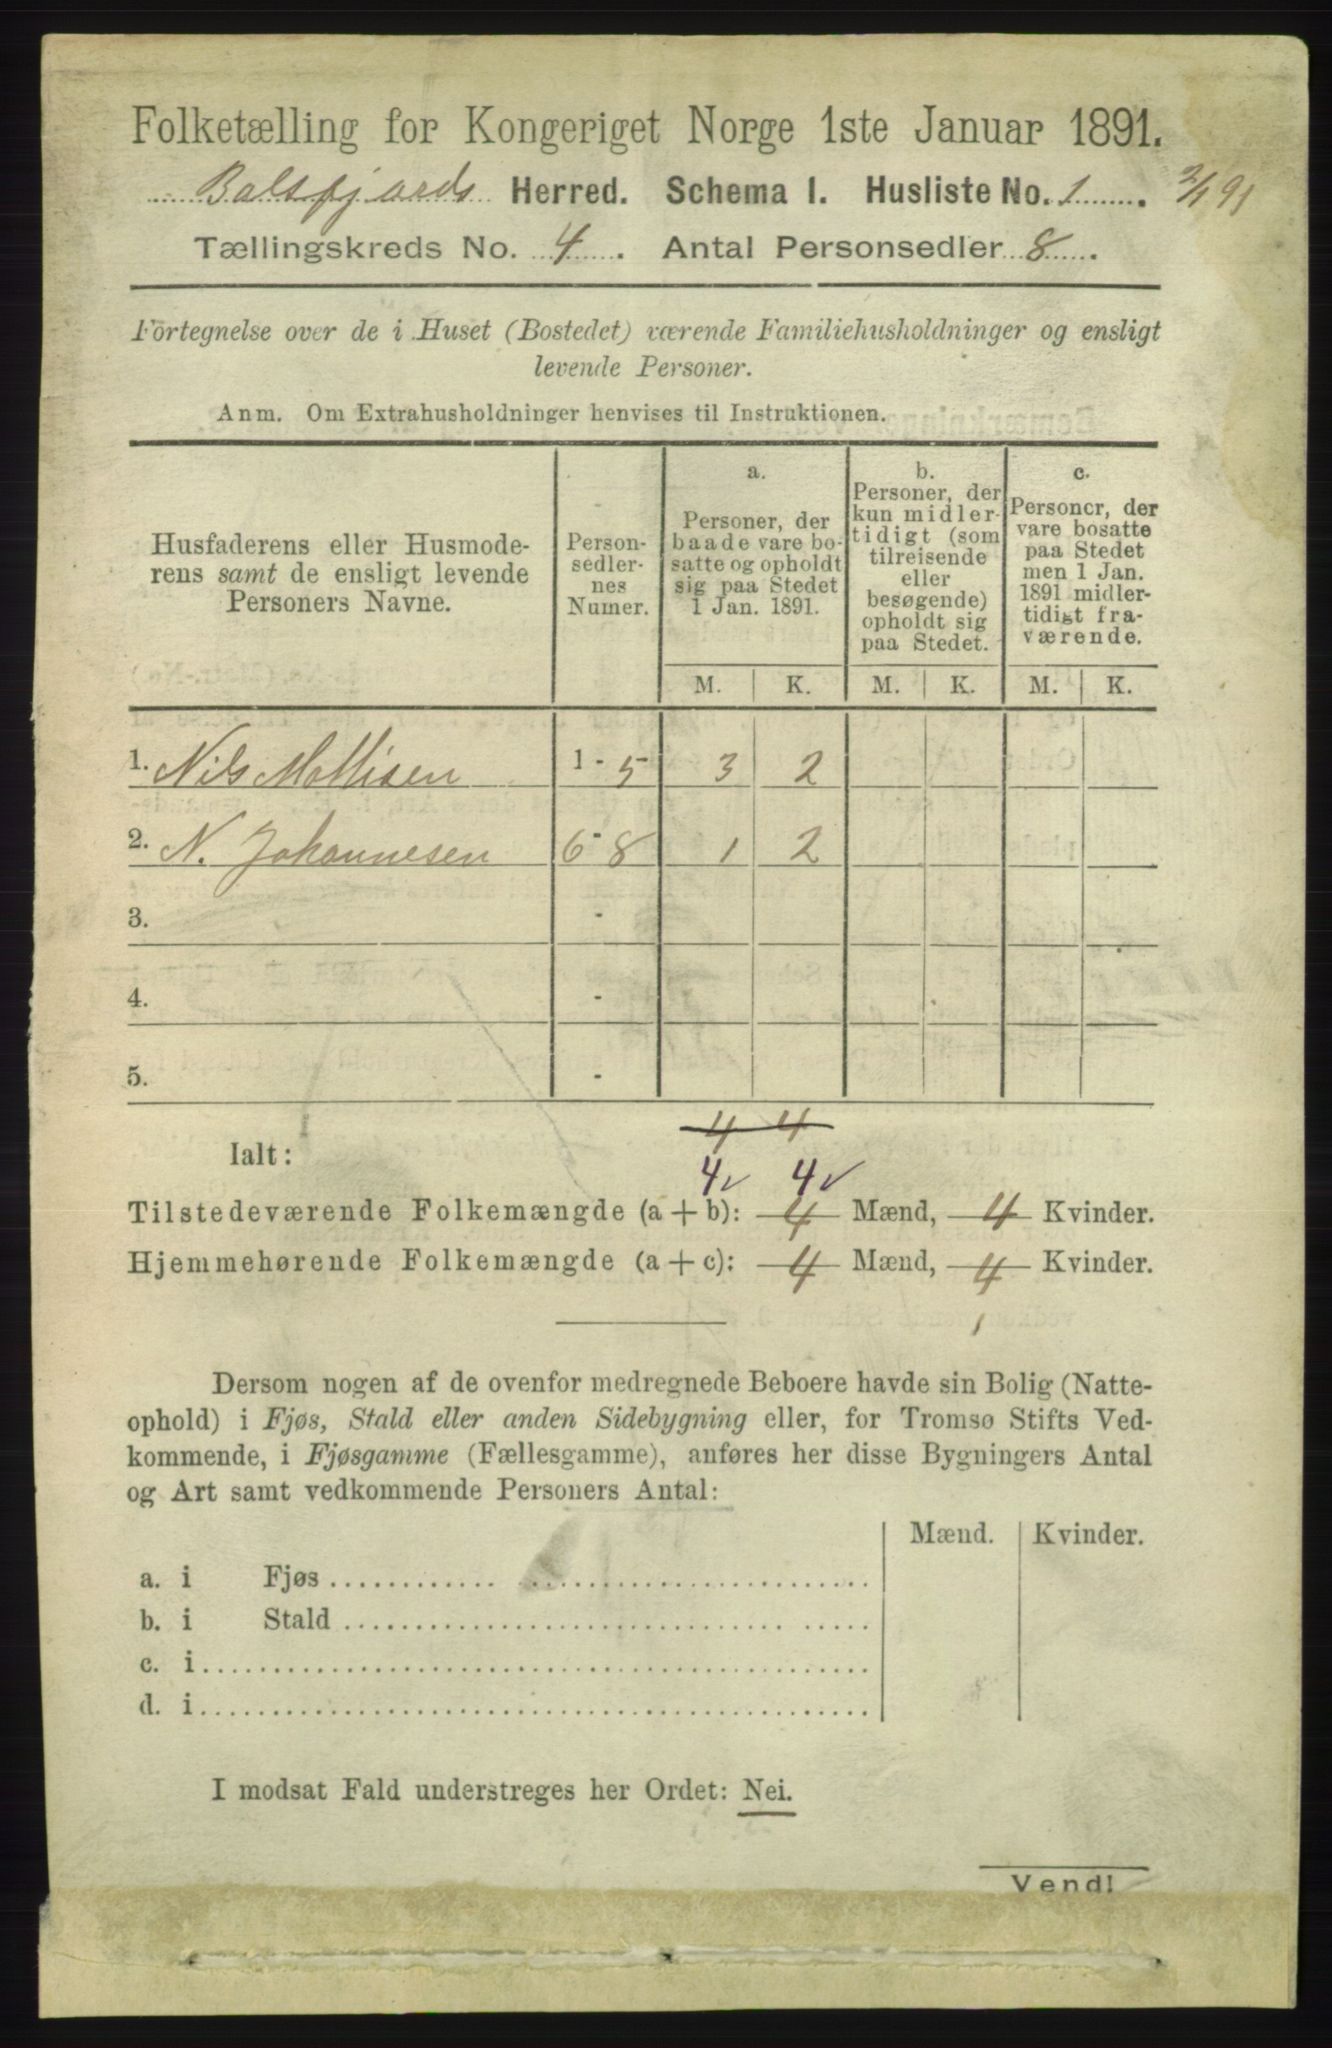 Folketælling for Kongeriget Norge 1ste Januar 1891.
Balsfjords Herred. Schema I. Husliste No. 1.
Tællingskreds No. 4. Antal Personsedler 8.
Fortegnelse over de i Huset (Bostedet) værende Familiehusholdninger og ensligt
levende Personer.
Anm. Om Extrahusholdninger henvises til Instruktionen.
Husfaderens eller Husmode-
rens samt de ensligt levende
Personers Navne.
Person-
sedler-
nes
Numer.
a.
Personer, der
baade vare bo-
satte og opholdt
sig paa Stedet
1 Jan. 1891.
b.
Personer, der
kun midler-
tidigt (som
tilreisende
eller
besøgende)
opholdt sig
paa Stedet.
c.
Personer, der
vare bosatte
paa Stedet
men 1 Jan.
1891 midler-
tidigt fra-
værende.
M. K. M. K. M. K.
1. Nils Mathisen 1 - 5 3 2
2. N. Johannesen 6 - 8 1 2
3. -
4. -
5. -
4 4
Ialt:
4 4
Tilstedeværende Folkemængde (a + b): 4 Mænd, 4 Kvinder.
Hjemmehørende Folkemængde (a + c): 4 Mænd, 4 Kvinder.
Dersom nogen af de ovenfor medregnede Beboere havde sin Bolig (Natte-
ophold) i Fjøs, Stald eller anden Sidebygning eller, for Tromsø Stifts Ved-
kommende, i Fjøsgamme (Fællesgamme), anføres her disse Bygningers Antal
og Art samt vedkommende Personers Antal:
Mænd. Kvinder.
a. i Fjøs
b. i Stald
c. i
d. i
I modsat Fald understreges her Ordet: Nei.
Vend!